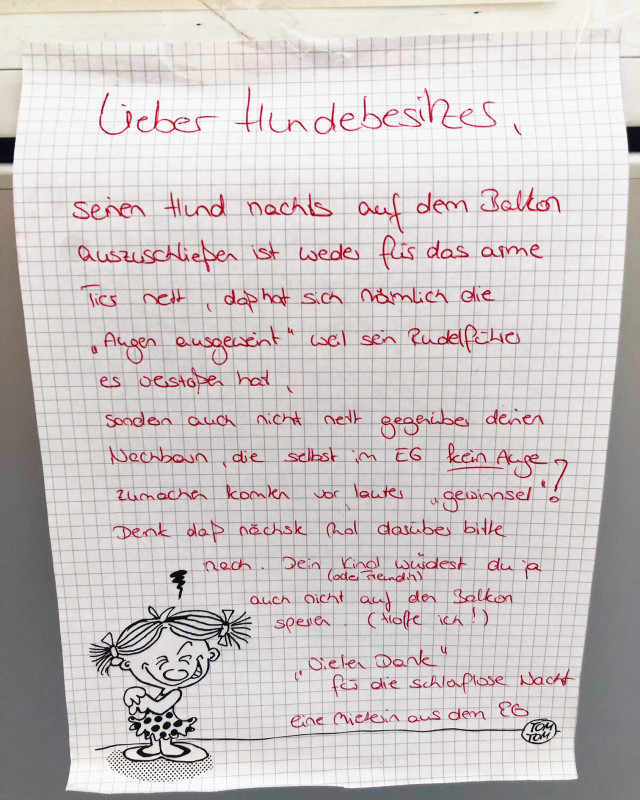 Lieber Hundebesitzer,
seinen Hund nachts auf dem Balkon
auszuschließen ist weder für das arme
Tier nett, daß hat sich nämlich die
„Augen ausgeweint" weil sein Rudelführer
es verstoßen hat,
sondern auch nicht nett gegenüber deinen
Nachbarn, die selbst im EG kein Auge
zumachen konnten vor lauter „gewinnsel"!?
Denk daß nächste Mal darüber bitte
nach. Dein Kind würdest du ja
(oder Freundin)
auch nicht auf den Balkon
sperren. (Hoffe ich!)
„Vielen Dank"
für die schlaflose Nacht
eine Mieterin aus dem EG
TOM
TOM